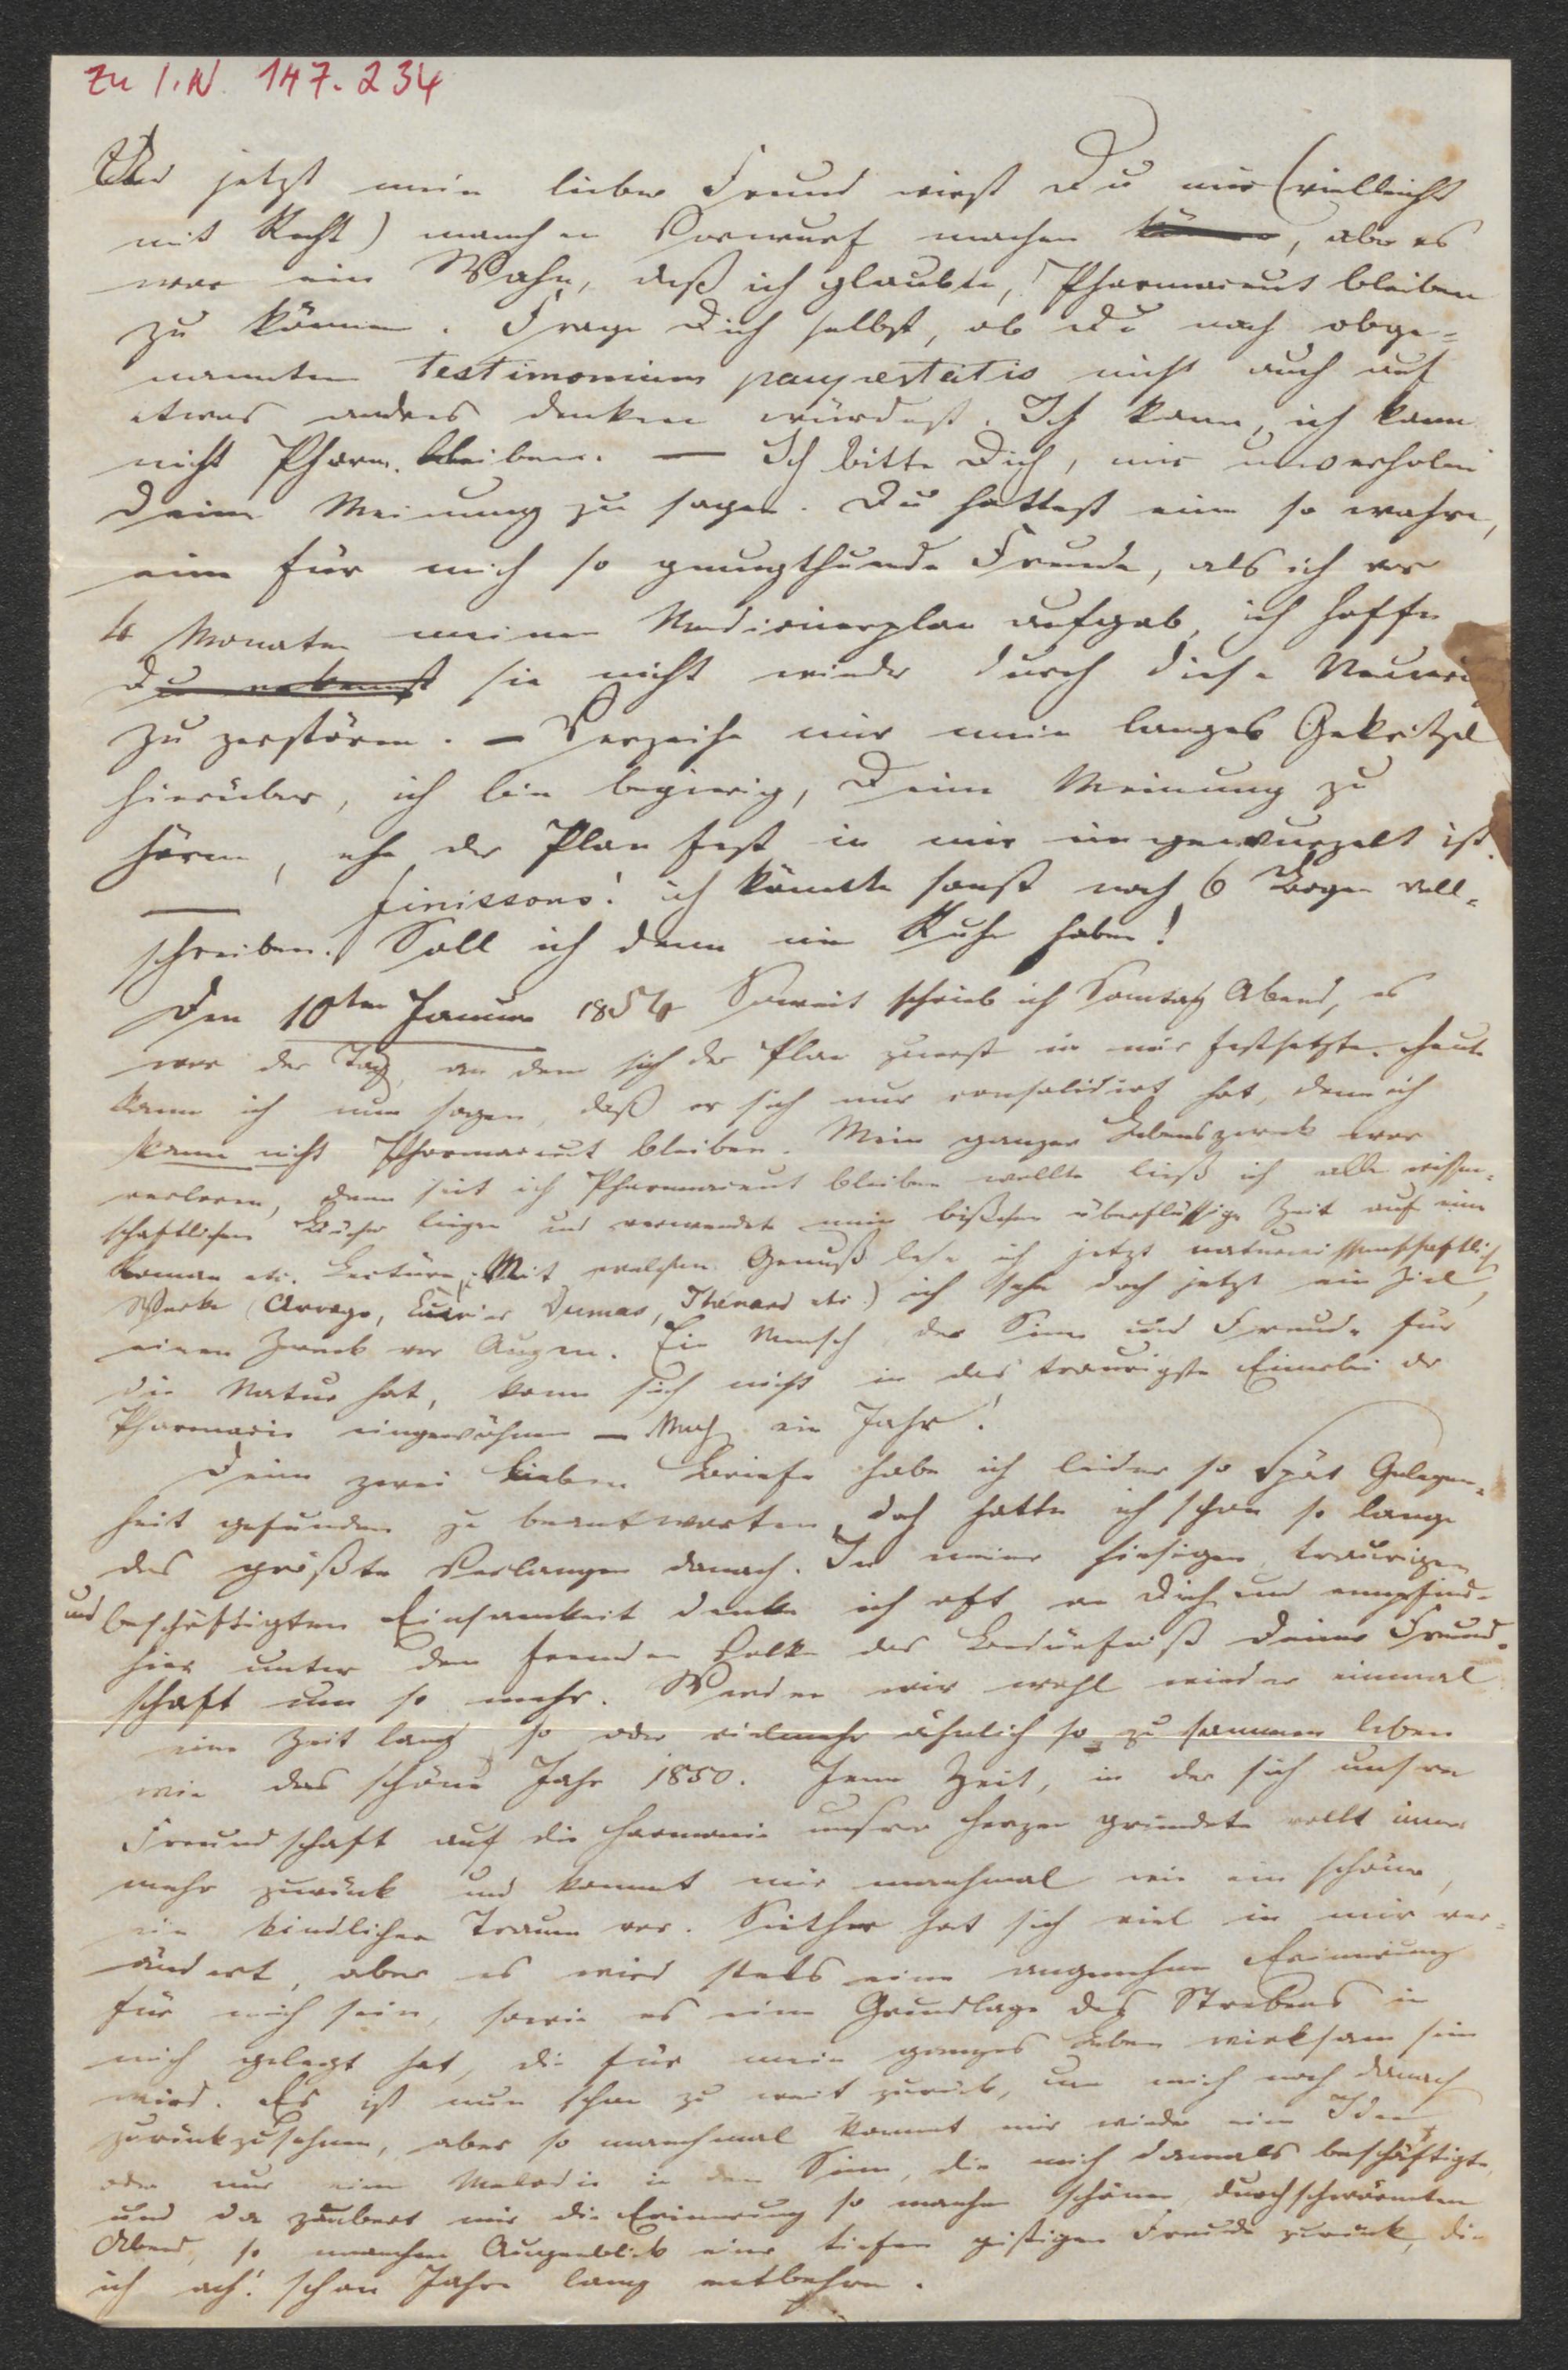 Zu I.N. 147.234
Und jetzt mein lieber Freund wirst Du mir (vielleicht
mit Recht) manchen Vorwurf machen, aber es
war ein Wahn, daß ich glaubte, Pharmaceut bleiben
zu können. Frage Dich selbst, ob Du nach obge-
nanntem testimonium paupertatis nicht auch auf
etwas andres denken würdest. Ich kann, ich kann
nicht Pharm. bleiben. — Ich bitte Dich, mir unverholen
Deine Meinung zu sagen. Du hattest eine so wahre,
eine für mich so genugthuende Freude, als ich vor
4 Monaten meinen Medicinerplan aufgab, ich hoffe
Du erkennst sie nicht wieder durch diese
zu zerstören. — Verzeihe mir mein langes Gekritzel
hierüber, ich bin begierig, Deine Meinung zu
hören, ehe der Plan fest in mir eingewurzelt ist.
— finissons! ich könnte sonst noch 6 Bogen voll-
schreiben. Soll ich denn nie Ruhe haben!
Den 10ten Januar 1854 Soweit schrieb ich Sonntag Abend, es
war der Tag, an dem sich der Plan zuerst in mir festsetzte. Heute
kann ich nun sagen, daß er sich nur consolidirt hat, denn ich
kann nicht Pharmaceut bleiben. Mein ganzer Lebenszweck war
verloren, denn seit ich Pharmaceut bleiben wollte ließ ich alle wissen-
schaftlichen Bücher liegen und verwendete mein bißchen überflüssige Zeit auf eine
Roman etc. Lectüre. Mit welchem Genuß lese ich jetzt naturwissenschaftlich
Werke (Arrago, Cuvier Dumas, Thénard etc.) ich sehe doch jetzt ein Ziel,
einen Zweck vor Augen. Ein Mensch, der Sinn und Freude für
die Natur hat, kann sich nicht in das traurigste Einerlei der
Pharmacie eingewöhnen — Noch ein Jahr!
Deine zwei lieben Briefe habe ich leider so spät Gelegen-
heit gefunden zu beantworten, doch hatte ich schon so lange
das größte Verlangen danach. In meiner hiesigen, traurigen
und beschäftigten Einsamkeit denke ich oft an Dich und empfinde
hier unter dem fremden Volke das Bedürfniß Deiner Freund-
schaft um so mehr. Werden wir wohl wieder einmal
eine Zeit lang so oder vielmehr ähnlich so zusammen leben
wie das schöne Jahr 1850. Jene Zeit, in der sich unsre
Freundschaft auf die Harmonie unsrer Herzen gründete rollt immer
mehr zurück und kommt mir manchmal wie ein schöner,
ein kindlicher Traum vor. Seither hat sich viel in mir ver-
ändert, aber es wird stets eine angenehme Erinnerung
für mich sein, sowie es eine Grundlage des Strebens in
mich gelegt hat, die für mein ganzes Leben wirksam sein
wird. Es ist nun schon zu weit zurück, um mich noch danach
zurückzusehnen, aber so manchmal kommt mir wieder eine Idee
oder nur eine Melodie in den Sinn, die mich damals beschäftigte,
und da zaubert mir die Erinnerung so manchen schönen, durchschwärmten
Abend, so manchen Augenblick einer tiefen geistigen Freude zurück, die
ich ach! schon Jahre lang entbehre.